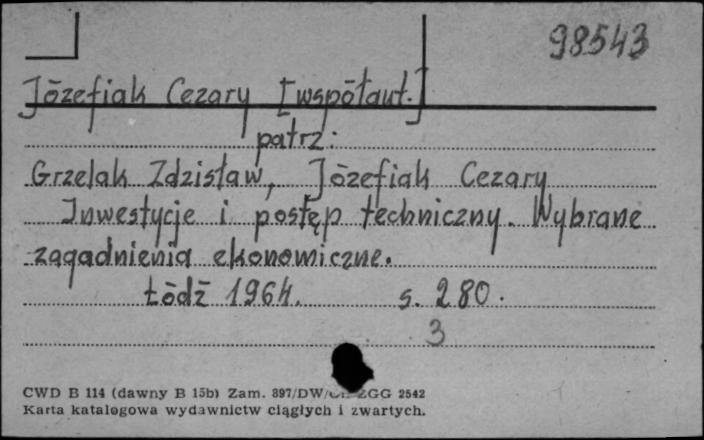 98543
Józefiak Cezary [współaut.]
patrz:
Grzelak Zdzisław, Józefiak Cezary
Inwestycje i postęp techniczny. Wybrane
zagadnienia ekonomiczne.
Łódź 1964. s. 280.
3
CWD B 114 (dawny B 15b) Zam. 897/DW/ ZGG 2542
Karta katalogowa wydawnictw ciągłych i zwartych.